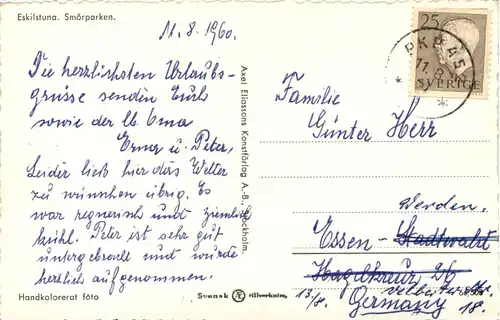 Eskilstuna. Smörparken.
11.8.1960.
Die herzlichsten Urlaubs-
grüsse senden Euch
sowie der lb. Oma
Erna u. Peter,
Leider ließ hier das Wetter
zu wünschen übrig. Es
war regnerisch und ziemlich
kühl. Peter ist sehr gut
untergebracht und wurde
herzlich aufgenommen.
Handkolorerat foto
Axel Eliassons Konstförlag A.-B. Stockholm.
Svensk Æ tillverkning
25
SVERIGE
PKP 45
11.8
Familie
Günter Herr
Werden.
Essen-Stadtwald
13/8.
Germany
18.